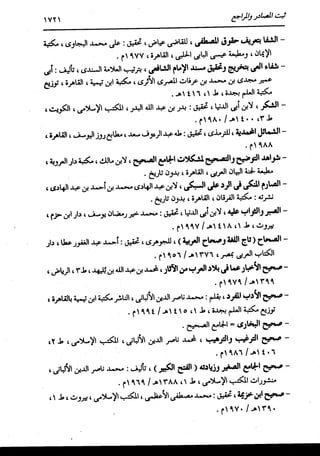 ثبت المصادر والمراجع ١٧٢١
- الشفا بتعريف حقوق المصطفى ، للقاضي عياض ، تحقيق : علي محمد البجاوي ، مكتبة
الإيمان ، ومطبعة عيسى البابي الحلبي ، القاهرة ، ١٩٧٧م .
- شفاء العي بتخريج وتحقيق مسند الإمام الشافعي ، بترتيب العلامة السندي ، تأليف : أبي
عمير مجدي بن محمد بن عرفات المصري الأثري ، مكتبة ابن تيمية ، القاهرة ، توزيع
مكتبة العلم بجدة ، ط ١ ، ١٤١٦هـ .
- الشكر ، لابن أبي الدنيا ، تحقيق : بدر بن عبد الله البدر ، المكتب الإسلامي ، الكويت ،
ط ٣ ، ١٤٠٠هـ / ١٩٨٠م .
- الشمائل المحمدية ، للترمذي ، تحقيق : طه عبد الرءوف سعد ، مطابع روز اليوسف ، القاهرة ،
١٩٨٨م .
- شواهد التوضيح والتصحيح لمشكلات الجامع الصحيح ، لابن مالك ، مكتبة دار العروبة ،
مطبعة لجنة البيان العربي ، القاهرة ، بدون تاريخ .
- الصارم المنكي في الرد على السبكي ، لابن عبد الهادي محمد بن أحمد بن عبد الهادي ،
نشرته : مكتبة الفرقان ، القاهرة ، بدون تاريخ .
- الصبر والثواب عليه ، لابن أبي الدنيا ، تحقيق : محمد خير رمضان يوسف ، دار ابن حزم ،
بيروت ، ط ١ ، ١٤١٨هـ / ١٩٩٧م .
- الصحاح ( تاج اللغة وصحاح العربية ) ، للجوهري ، تحقيق : أحمد عبد الغفور عطا ، دار
الكتاب العربي بمصر ، ١٣٧٦هـ / ١٩٥٦م .
- صحيح الأخبار عما في بلاد العرب من الآثار ، لمحمد بن عبد الله بن بليهد ، ط ٣ ، الرياض ،
١٣٩٩هـ / ١٩٧٩م .
- صحيح الأدب المفرد ، بقلم : محمد ناصر الدين الألباني ، الناشر مكتبة ابن تيمية بالقاهرة ،
توزيع مكتبة العلم بجدة ، ط ١ ، ١٤١٥هـ / ١٩٩٤م .
- صحيح البخاري = الجامع الصحيح .
- صحيح الترغيب والترهيب ، محمد ناصر الدين الألباني ، المكتب الإسلامي ، ط ٢ ،
١٤٠٦هـ / ١٩٨٦م .
- صحيح الجامع الصغير وزيادته ( الفتح الكبير ) ، تأليف : محمد ناصر الدين الألباني ،
منشورات المكتب الإسلامي ، ط ١ ، ١٣٨٨هـ / ١٩٦٩م .
- صحيح ابن خزيمة ، تحقيق : محمد مصطفى الأعظمي ، المكتب الإسلامي ، بيروت ، ط ١ ،
١٣٩٠هـ / ١٩٧٠م .